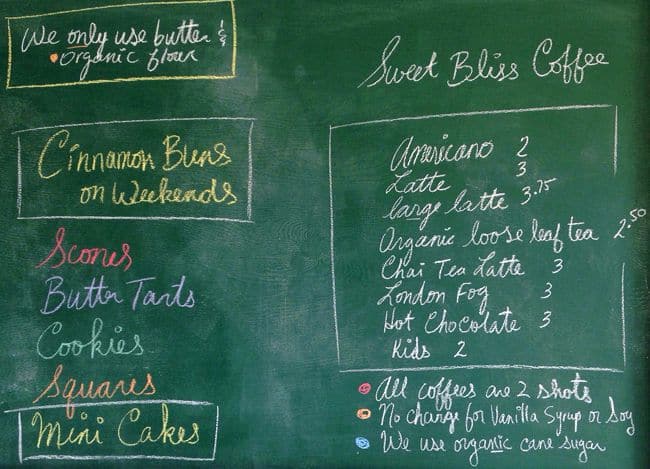 We only use butter &
• Organic flour
Cinnamon Buns
on Weekends
Scones
Butter Tarts
Cookies
Squares
Mini Cakes
Sweet Bliss Coffee
Americano 2
Latte 3
large latte 3.75
Organic loose leaf tea 2.50
Chai Tea Latte 3
London Fog 3
Hot Chocolate 3
Kids 2
• All coffees are 2 shots
• No change for Vanilla Syrup or Soy
• We use organic cane sugar